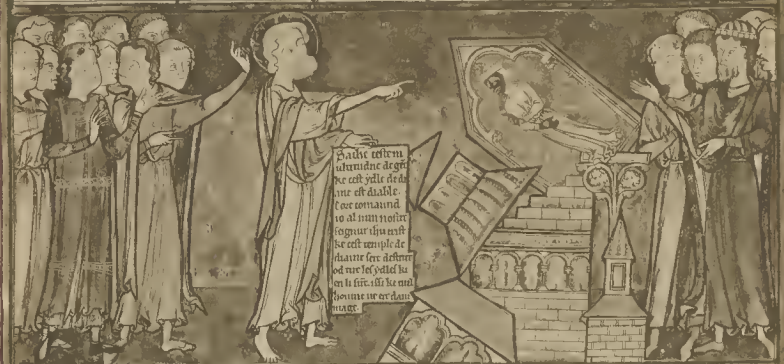 Sache ceste m
ultitudne de gēt
ke cest ydle de di
ane est diable.
E ore comaund
io al num nostre
seignur ihu crist
ke cest temple de
diaune seit destrut
od tuz les ydles ki
en li sūt. issi ke nul
houme ne eit dam
mage.